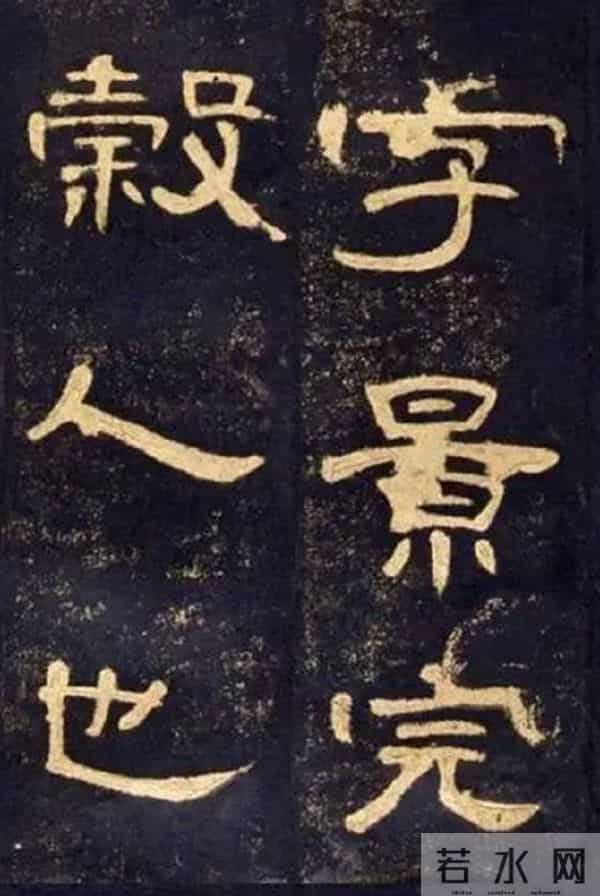 字景完
穀人也
若水网